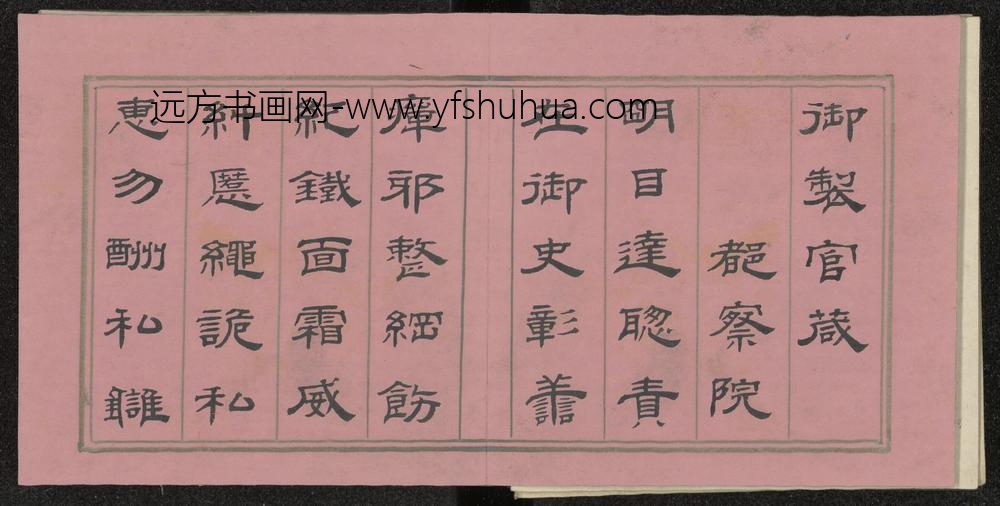 御製官箴
都察院
明目達聰責
在御史彰善
癉邪整綱飭
紀鐵面霜威
糾慝繩詭私
惠勿酬私讎
远方书画网-www.yfshuhua.com